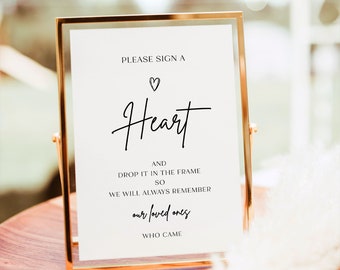 PLEASE SIGN A
Heart
AND
DROP IT IN THE FRAME
SO
WE WILL ALWAYS REMEMBER
our loved ones
WHO CAME